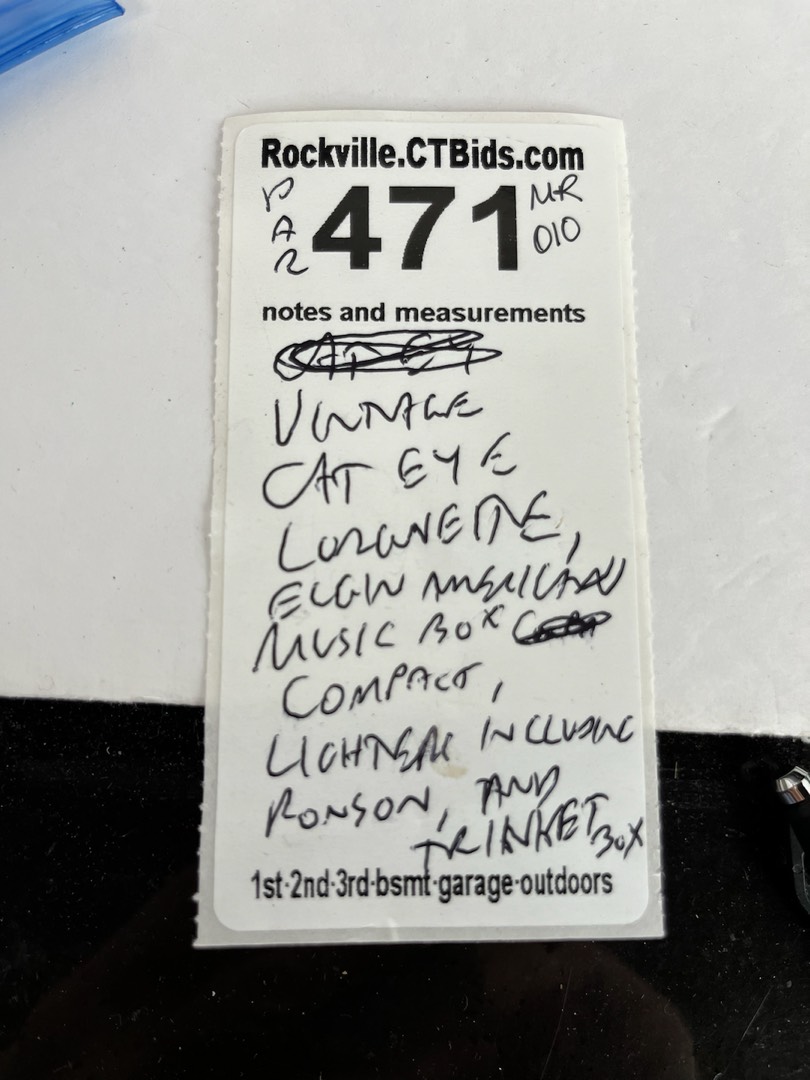 Rockville.CTBids.com
PAR 471 MR 010
notes and measurements
VINTAGE
CAT EYE
LORGNETTE,
ELGIN AMERICAN
MUSIC BOX
COMPACT,
LIGHTERS INCLUDING
RONSON, AND
TRINKET BOX
1st·2nd·3rd·bsmt·garage·outdoors